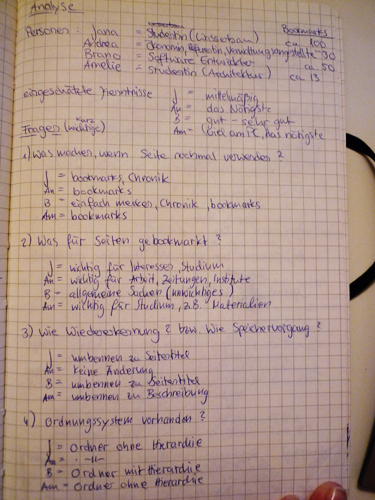 Analyse
Personen: Jana = Studentin (Wasserbau) Bookmarks ca. 100
Andrea = Ökonomin, Verwaltungsangestellte 30
Bruno = Software Entwickler ca 50
Amelie = Studentin (Architektur) ca. 13
eingeschätzte Kenntnisse J = mittelmäßig
An = das Nötigste
B = gut - sehr gut
Am = viel am PC, das nötigste
Fragen (kurz wichtige)
1) Was machen, wenn Seite nochmal verwenden?
J = bookmarks, Chronik
An = bookmarks
B = einfach merken, Chronik, bookmarks
Am = bookmarks
2) Was für Seiten gebookmarkt?
J = wichtig für Interessen, Studium
An = wichtig für Arbeit, Zeitungen, Institute
B = allgemeine Sachen (unwichtiges)
Am = wichtig für Studium, z.B. Materialien
3) Wie Wiedererkennung? bzw. Wie Speichervorgang?
J = umbennen zu Seitentitel
An = keine Änderung
B = umbennen zu Seitentitel
Am = umbennen zu Beschreibung
4) Ordnungssystem vorhanden?
J = Ordner ohne Hierarchie
An = -"-
B = Ordner mit Hierarchie
Am = Ordner ohne Hierarchie